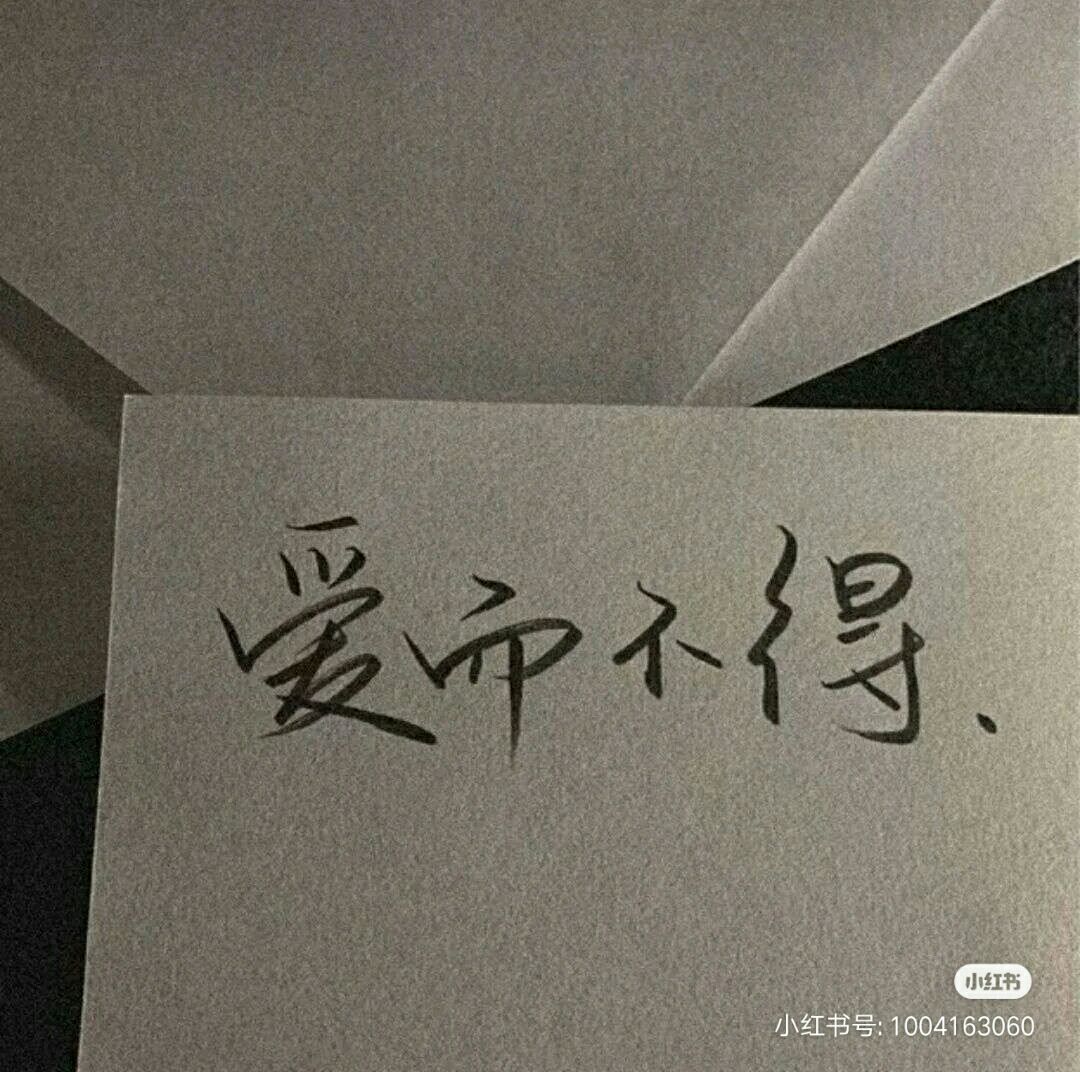 爱而不得.
小红书
小红书号: 1004163060